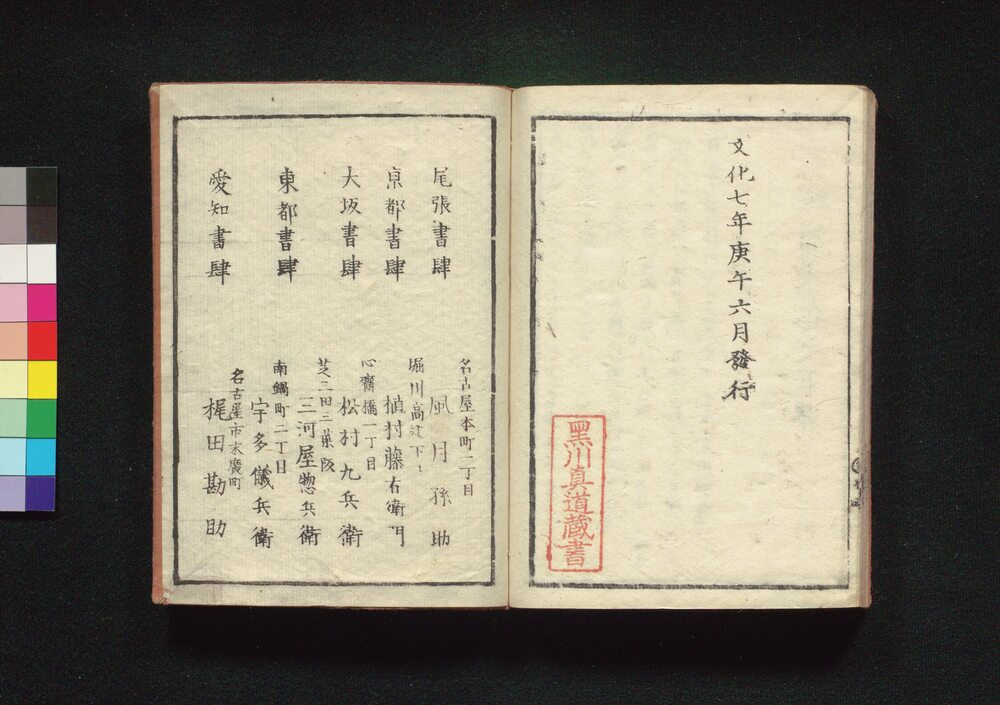 文化七年庚午六月發行
黒川真道蔵書
尾張書肆
名古屋本町一丁目
風月孫助
京都書肆
堀川高辻下ル
植村藤右衛門
大坂書肆
心齋橋一丁目
松村九兵衛
東都書肆
芝三田三葉
三河屋惣兵衛
南鍋町二丁目
宇多儀兵衛
愛知書肆
名古屋市末廣町
梶田勘助